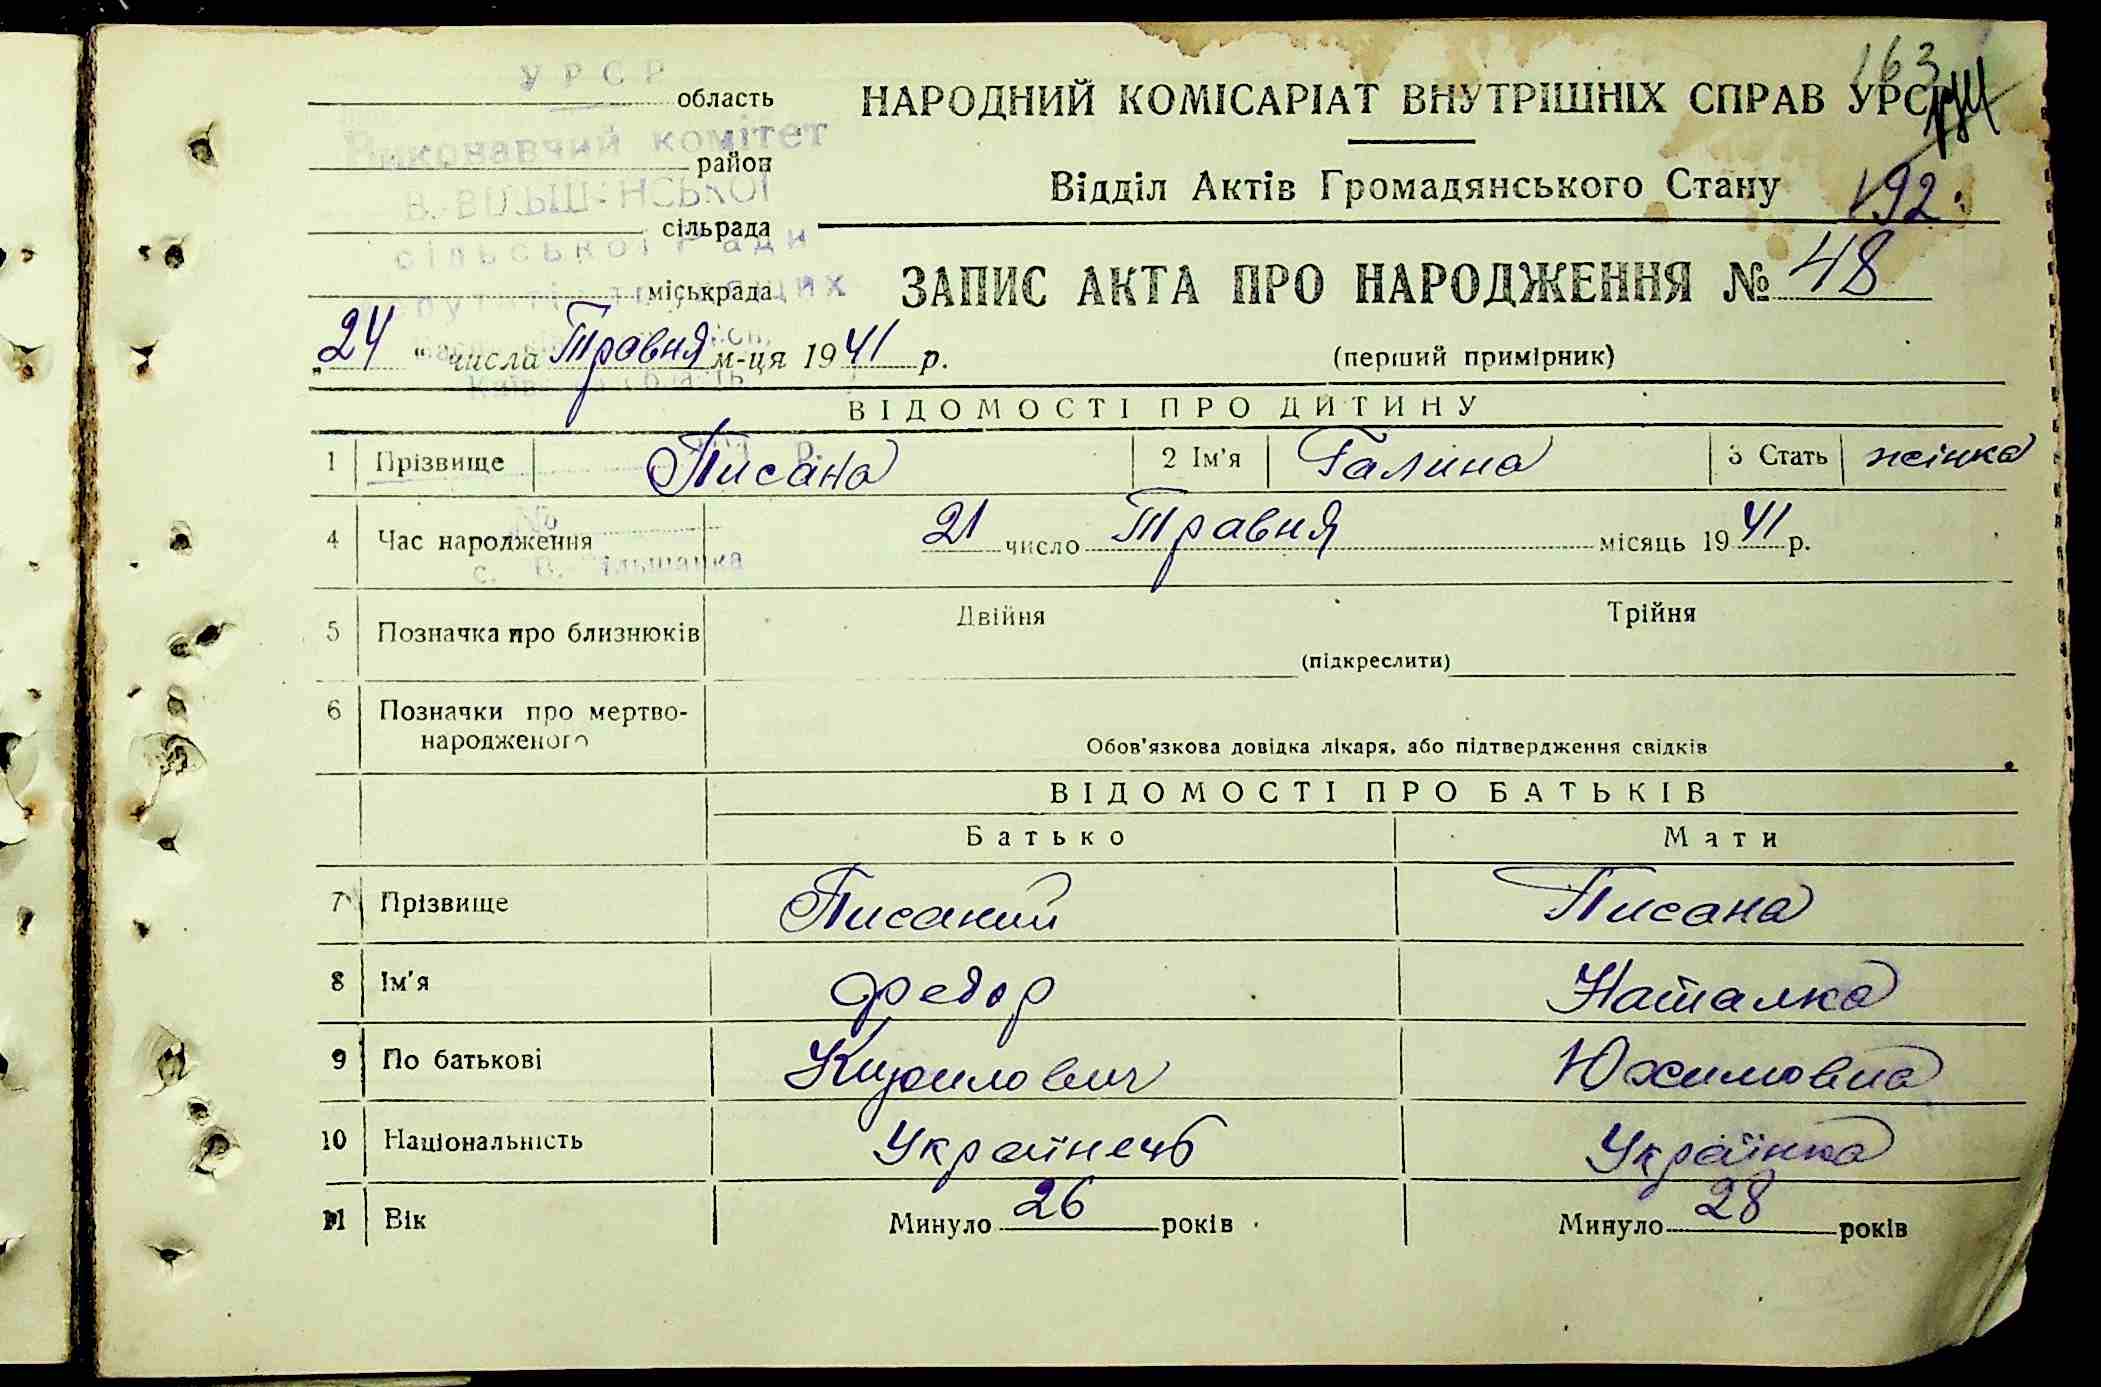 УРСР
область
163
НАРОДНИЙ КОМІСАРІАТ ВНУТРІШНІХ СПРАВ УРСР
Виконавчий комітет
район
Відділ Актів Громадянського Стану
192.
В.-ВІЛЬШАНСЬКОЇ
сільрада
сільської Ради
міськрада
ЗАПИС АКТА ПРО НАРОДЖЕННЯ № 48
„24“ числа Травня м-ця 1941 р.
(перший примірник)
ВІДОМОСТІ ПРО ДИТИНУ
1 Прізвище Писана 2 Ім'я Галина 3 Стать жінка
№
4 Час народження 21 число Травня місяць 1941 р.
с. В. Вільшанка
5 Позначка про близнюків Двійня Трійня
(підкреслити)
6 Позначки про мертво-
народженого
Обов'язкова довідка лікаря, або підтвердження свідків
ВІДОМОСТІ ПРО БАТЬКІВ
Батько Мати
7 Прізвище Писаний Писана
8 Ім'я Федор Наталка
9 По батькові Кирилович Юхимовна
10 Національність Українець Українка
11 Вік Минуло 26 років Минуло 28 років